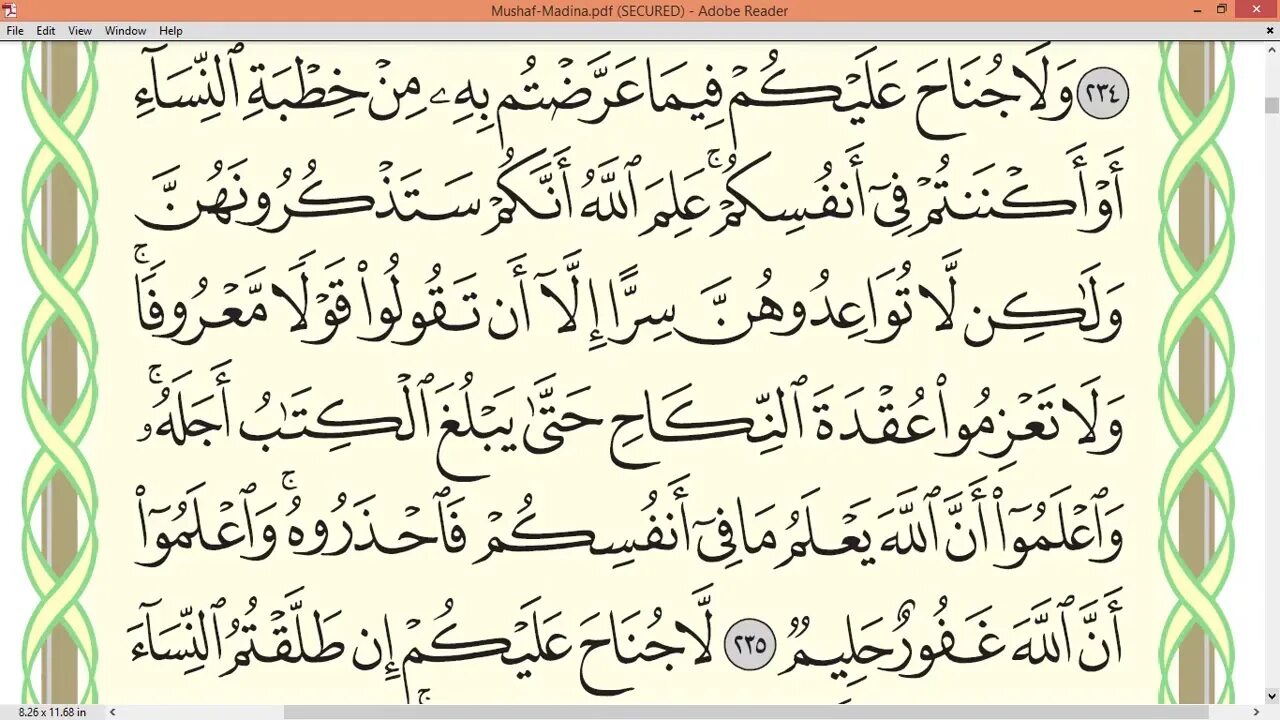 Mushaf-Madina.pdf (SECURED) - Adobe Reader
File Edit View Window Help
٢٣٤ وَلَا جُنَاحَ عَلَيْكُمْ فِيمَا عَرَّضْتُم بِهِۦ مِنْ خِطْبَةِ ٱلنِّسَآءِ
أَوْ أَكْنَنتُمْ فِىٓ أَنفُسِكُمْ ۚ عَلِمَ ٱللَّهُ أَنَّكُمْ سَتَذْكُرُونَهُنَّ
وَلَـٰكِن لَّا تُوَاعِدُوهُنَّ سِرًّا إِلَّآ أَن تَقُولُوا۟ قَوْلًا مَّعْرُوفًا ۚ
وَلَا تَعْزِمُوا۟ عُقْدَةَ ٱلنِّكَاحِ حَتَّىٰ يَبْلُغَ ٱلْكِتَـٰبُ أَجَلَهُۥ ۚ
وَٱعْلَمُوٓا۟ أَنَّ ٱللَّهَ يَعْلَمُ مَا فِىٓ أَنفُسِكُمْ فَٱحْذَرُوهُ ۚ وَٱعْلَمُوٓا۟
أَنَّ ٱللَّهَ غَفُورٌ حَلِيمٌ ٢٣٥ لَّا جُنَاحَ عَلَيْكُمْ إِن طَلَّقْتُمُ ٱلنِّسَآءَ
8.26 x 11.68 in